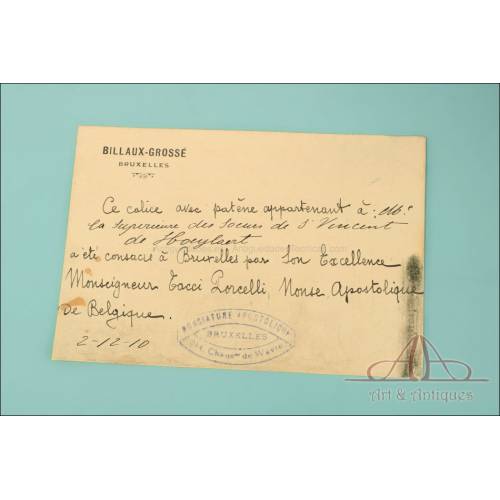 BILLAUX-GROSSÉ
BRUXELLES
Ce calice avec patène appartenant à : Md.e
la Supérieure des Soeurs de St Vincent
de Hoeylaert
a été consacré à Bruxelles par Son Excellence
Monseigneur Tacci Porcelli, Nonse Apostolique
de Belgique.
2-12-10
NONCIATURE APOSTOLIQUE
BRUXELLES
Chaussée de Wavre
Art & Antiques